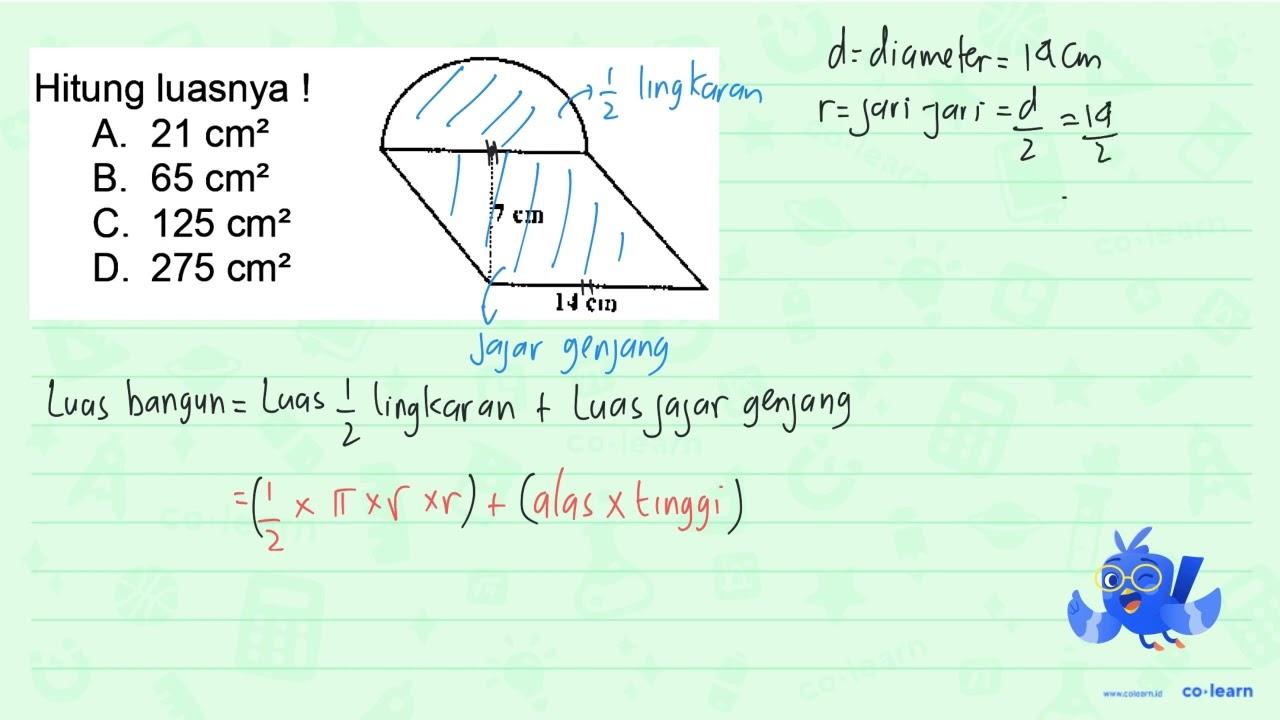 Hitung luasnya !
A. 21 cm²
B. 65 cm²
C. 125 cm²
D. 275 cm²
1/2 lingkaran
7 cm
14 cm
jajar genjang
d = diameter = 14 cm
r = jari jari = d/2 = 14/2
Luas bangun = Luas 1/2 lingkaran + Luas jajar genjang
= (1/2 × π × r × r) + (alas × tinggi)
www.colearn.id
co·learn